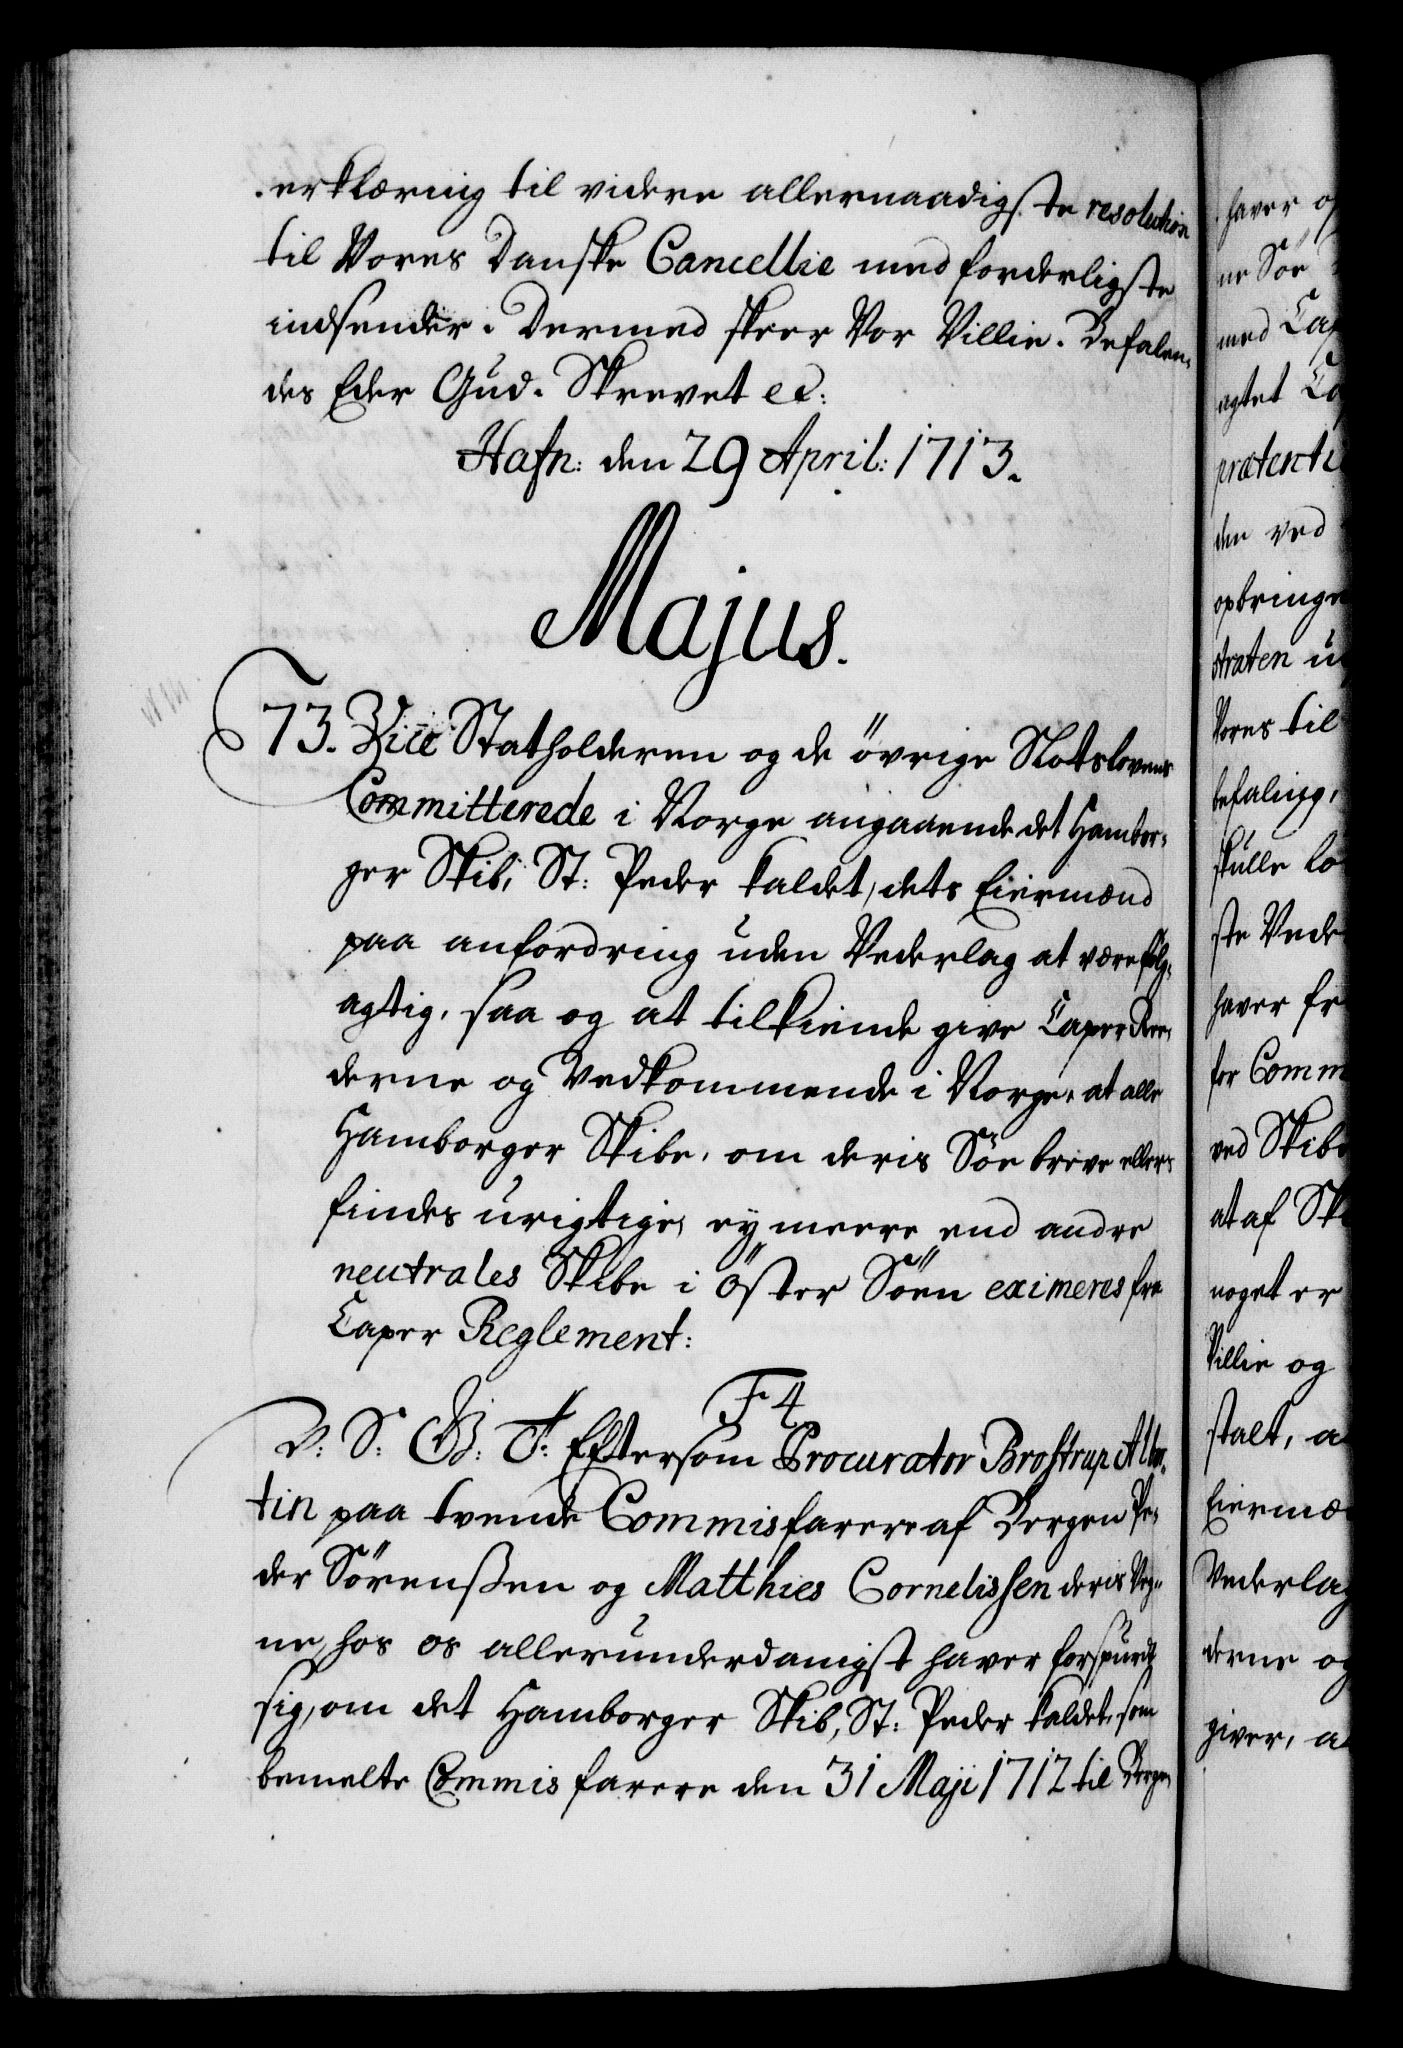 erklæring til videre allernaadigste resolution
til Vores Danske Cancellie med forderligste
indsender. Dermed skeer Vor Villie. Befalen-
des Eder Gud. Skrevet ec:
Hafn: den 29 April: 1713.
Majus.
73. Vice Statholderen og de övrige Slotslovens
Committerede i Norge angaaende det Hambor-
ger Skib, St: Peder kaldet, dets Eiermænd
paa anfordring uden Vederlag at være fölg-
agtig, saa og at tilkiende give Caper Ree-
derne og Vedkommende i Norge, at alle
Hamborger Skibe, om deris Söe breve ellers
findes urigtige, ey meere end andre
neutrales Skibe i Öster Söen eximeres fra
Caper Reglement:
F 4
V: S: G: T: Eftersom Procurator Brostrup Alber-
tin paa tvende Commisfarere af Bergen Pe-
der Sörenßen og Matthies Cornelissen deris Veg-
ne, hos os allerunderdanigst haver forspurdt
sig, om det Hamborger Skib, St: Peder kaldet, som
bemelte Commis farere den 31 Maji 1712 til Bergen
haver op
ne Söe
med Cap
agtet Ca
prætenti
den ved
opbringe
straten u
Vores til
befaling,
skulle lo
ste Vede
haver fr
for Comm
ved Skibe
at af Sk
noget er
Villie og
stalt, a
Eiermæ
Vederlag
derne og
giver, a